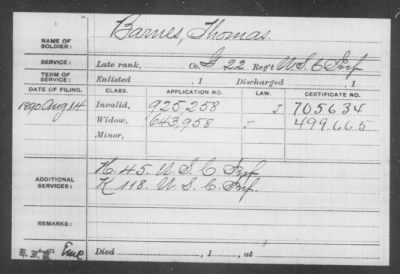 Barnes, Thomas.
NAME OF SOLDIER:
SERVICE: Late rank, Co. G 22 Reg't U.S.C. Inf
TERM OF SERVICE: Enlisted , 1 Discharged , 1
DATE OF FILING. CLASS. APPLICATION NO. LAW. CERTIFICATE NO.
1890 Aug 14 Invalid, 925,258 J 705634
Widow, 643,958 J 499.665
Minor,
ADDITIONAL SERVICES:
K. 45. U.S.C. Inf.
K 118. U.S.C. Inf.
REMARKS:
Died , 1 , at